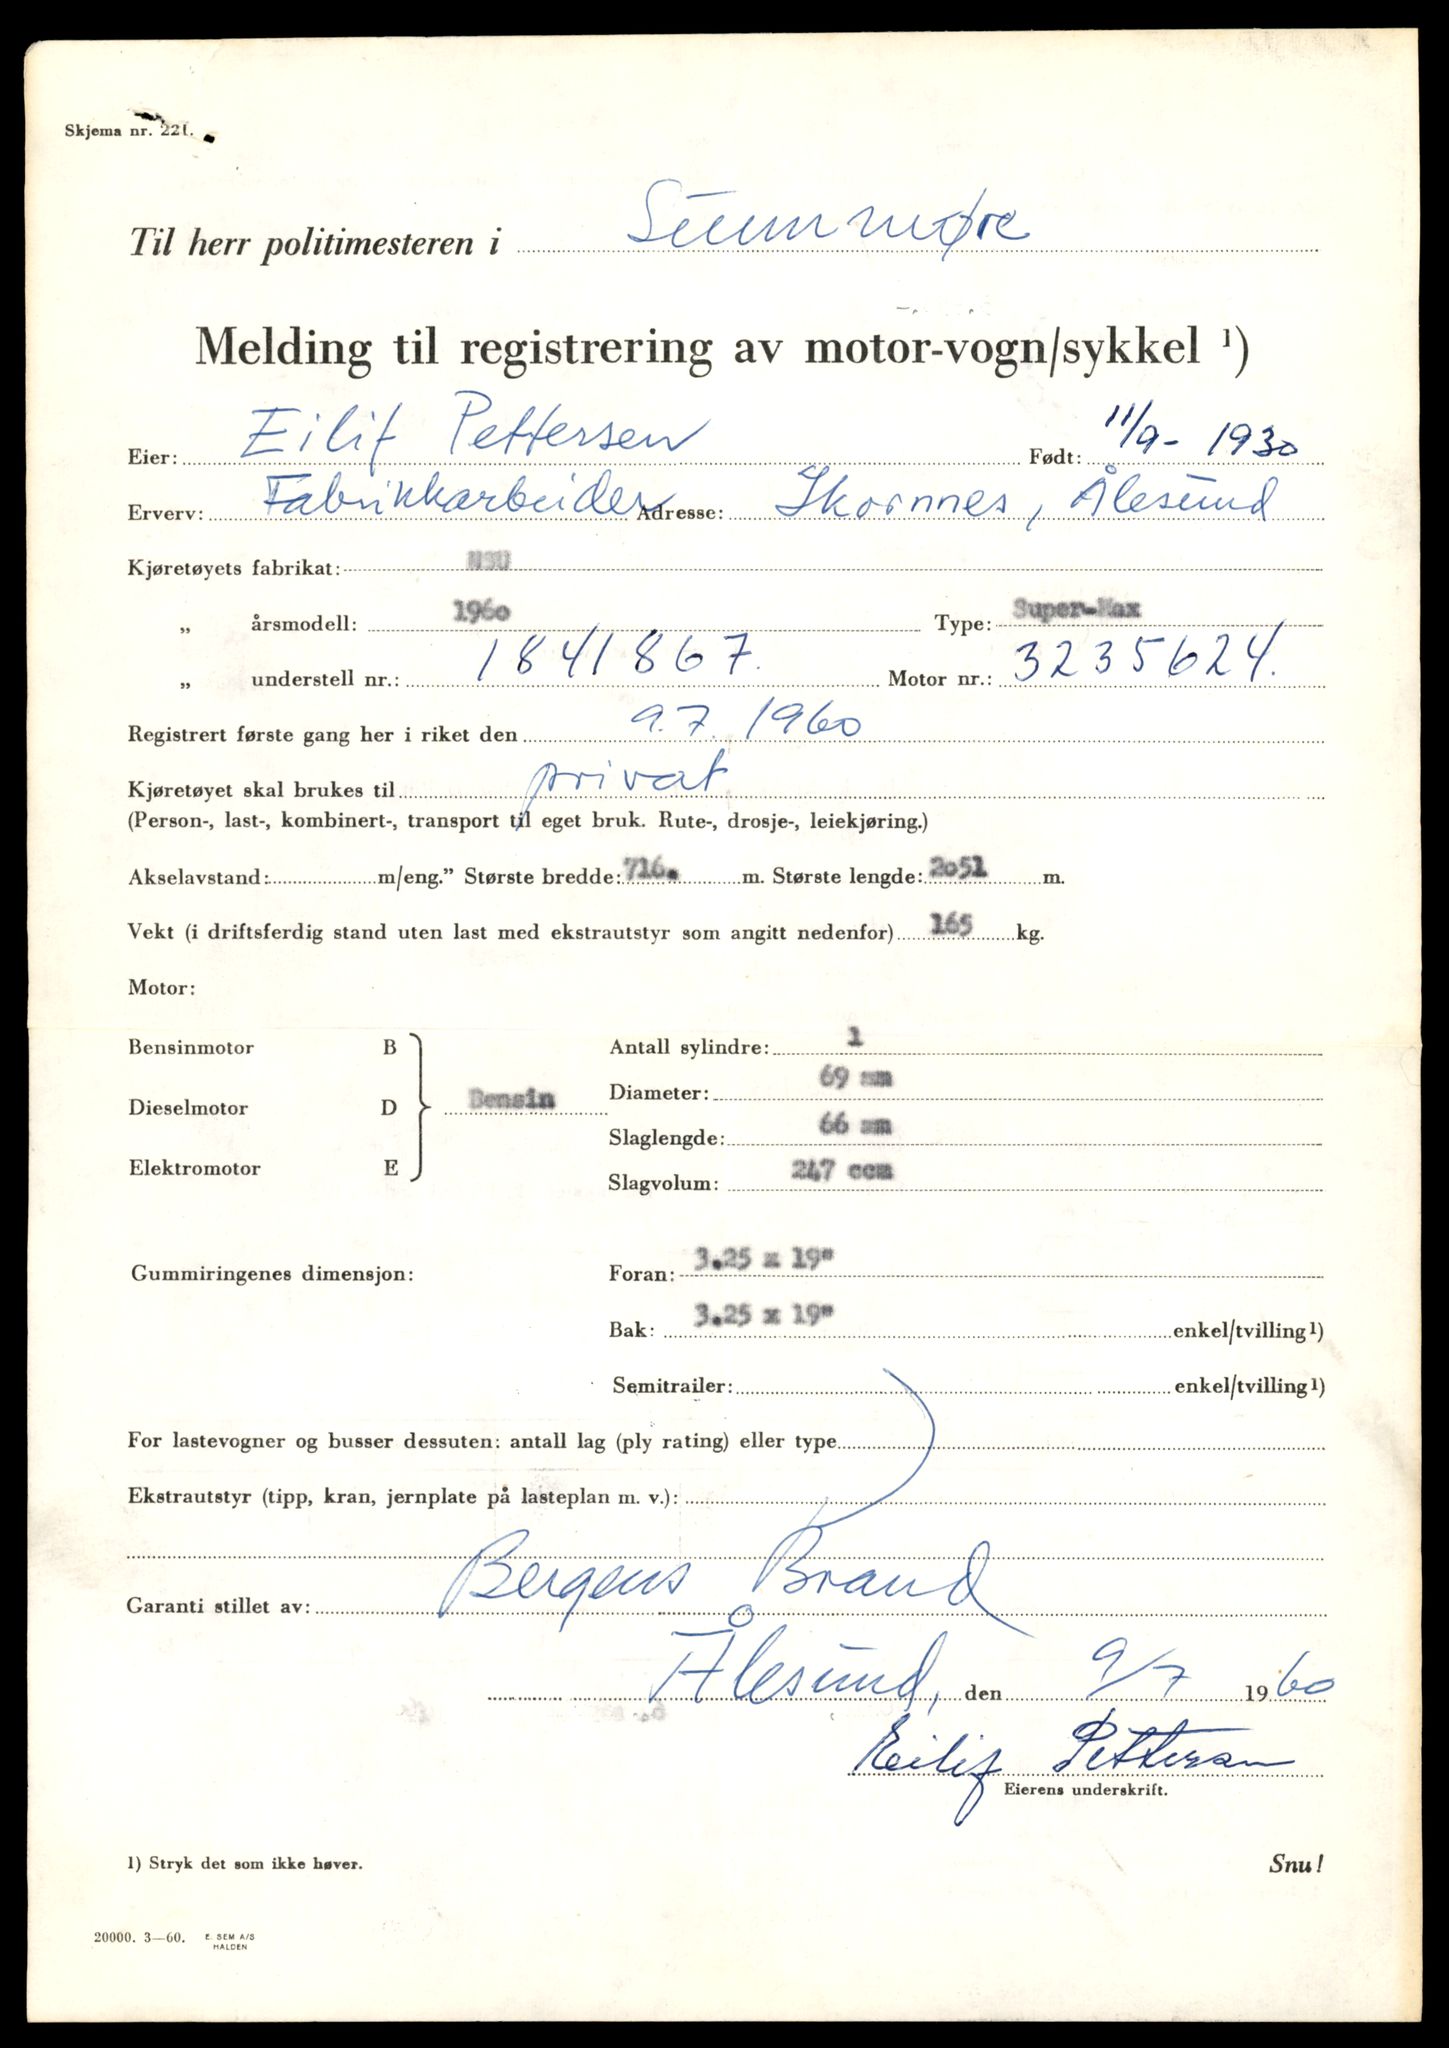 Skjema nr. 221.
Til herr politimesteren i Sunnmøre
Melding til registrering av motor-vogn/sykkel ¹)
Eier: Eilif Pettersen Født: 11/9- 1930
Erverv: Fabrikkarbeider Adresse: Skornnes, Ålesund
Kjøretøyets fabrikat: NSU
„ årsmodell: 1960 Type: Super-Max
„ understell nr.: 1841867. Motor nr.: 3235624.
Registrert første gang her i riket den 9.7.1960
Kjøretøyet skal brukes til privat
(Person-, last-, kombinert-, transport til eget bruk. Rute-, drosje-, leiekjøring.)
Akselavstand: m/eng.” Største bredde: 716. m. Største lengde: 2051 m.
Vekt (i driftsferdig stand uten last med ekstrautstyr som angitt nedenfor) 165 kg.
Motor:
Bensinmotor B Antall sylindre: 1
Diameter: 69 mm
Dieselmotor D Bensin
Slaglengde: 66 mm
Elektromotor E Slagvolum: 247 ccm
Gummiringenes dimensjon: Foran: 3.25 x 19"
Bak: 3.25 x 19" enkel/tvilling¹)
Semitrailer: enkel/tvilling¹)
For lastevogner og busser dessuten: antall lag (ply rating) eller type
Ekstrautstyr (tipp, kran, jernplate på lasteplan m. v.):
Garanti stillet av: Bergens Brand
Ålesund, den 9/7 1960
Eilif Pettersen
Eierens underskrift.
1) Stryk det som ikke høver. Snu!
20000. 3—60. E. SEM A/S
HALDEN